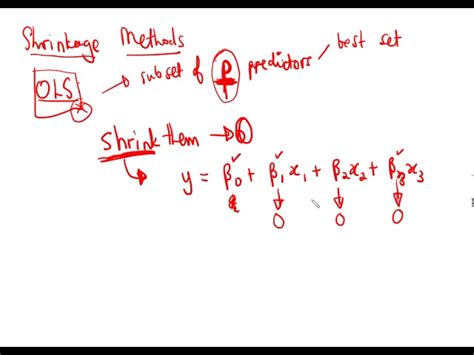 Shrinkage Methods
OLS → subset of p predictors / best set
shrink them → 0
y = β₀ + β₁x₁ + β₂x₂ + β₃x₃
0 0 0